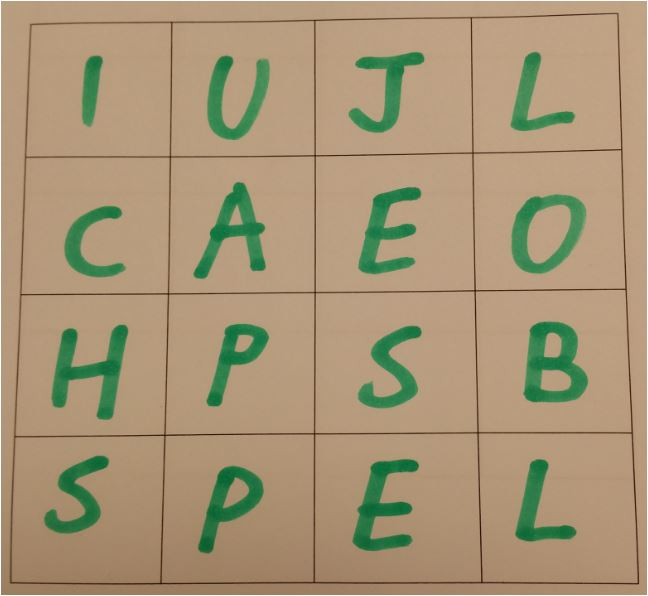 I U J L
C A E O
H P S B
S P E L